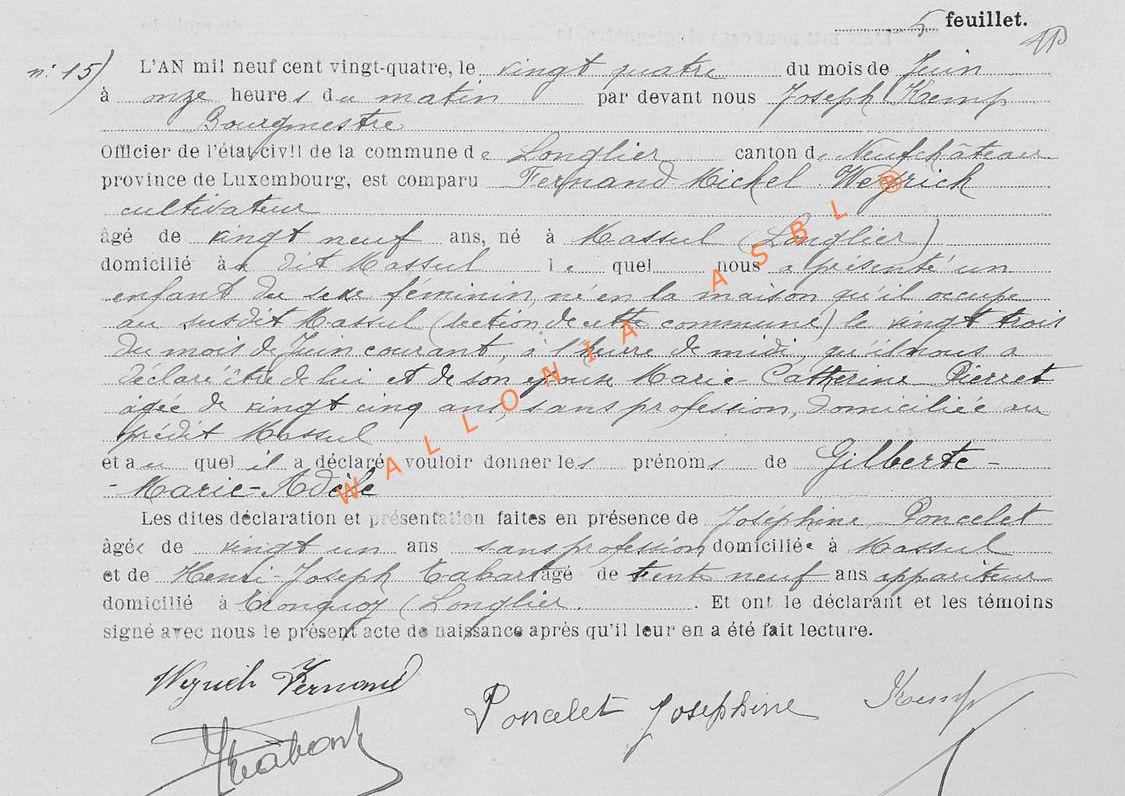 5 feuillet.
n° 15)
L'AN mil neuf cent vingt-quatre, le vingt quatre du mois de Juin
à onze heures du matin par devant nous Joseph Kemp
Bourgmestre
Officier de l'état civil de la commune de Longlier canton de Neufchâteau
province de Luxembourg, est comparu Fernand Michel Weyrich
cultivateur
âgé de vingt neuf ans, né à Massul (Longlier)
domicilié à dit Massul lequel nous a présenté un
enfant du sexe féminin, né en la maison qu'il occupe
au susdit Massul (section de cette commune) le vingt trois
du mois de Juin courant, à l'heure de midi, qu'il nous a
déclaré être de lui et de son épouse Marie-Catherine Pierret
âgée de vingt cinq ans, sans profession, domiciliée au
prédit Massul
et au quel il a déclaré vouloir donner les prénoms de Gilberte-
-Marie-Adèle
Les dites déclaration et présentation faites en présence de Joséphine Poncelet
âgée de vingt un ans sans profession domiciliée à Massul
et de Henri-Joseph Tabart âgé de trente neuf ans appariteur
domicilié à Tronquoy (Longlier. Et ont le déclarant et les témoins
signé avec nous le présent acte de naissance après qu'il leur en a été fait lecture.
Weyrich Fernand
Poncelet Josephine
Kemp
WALLONIA ASBL ®